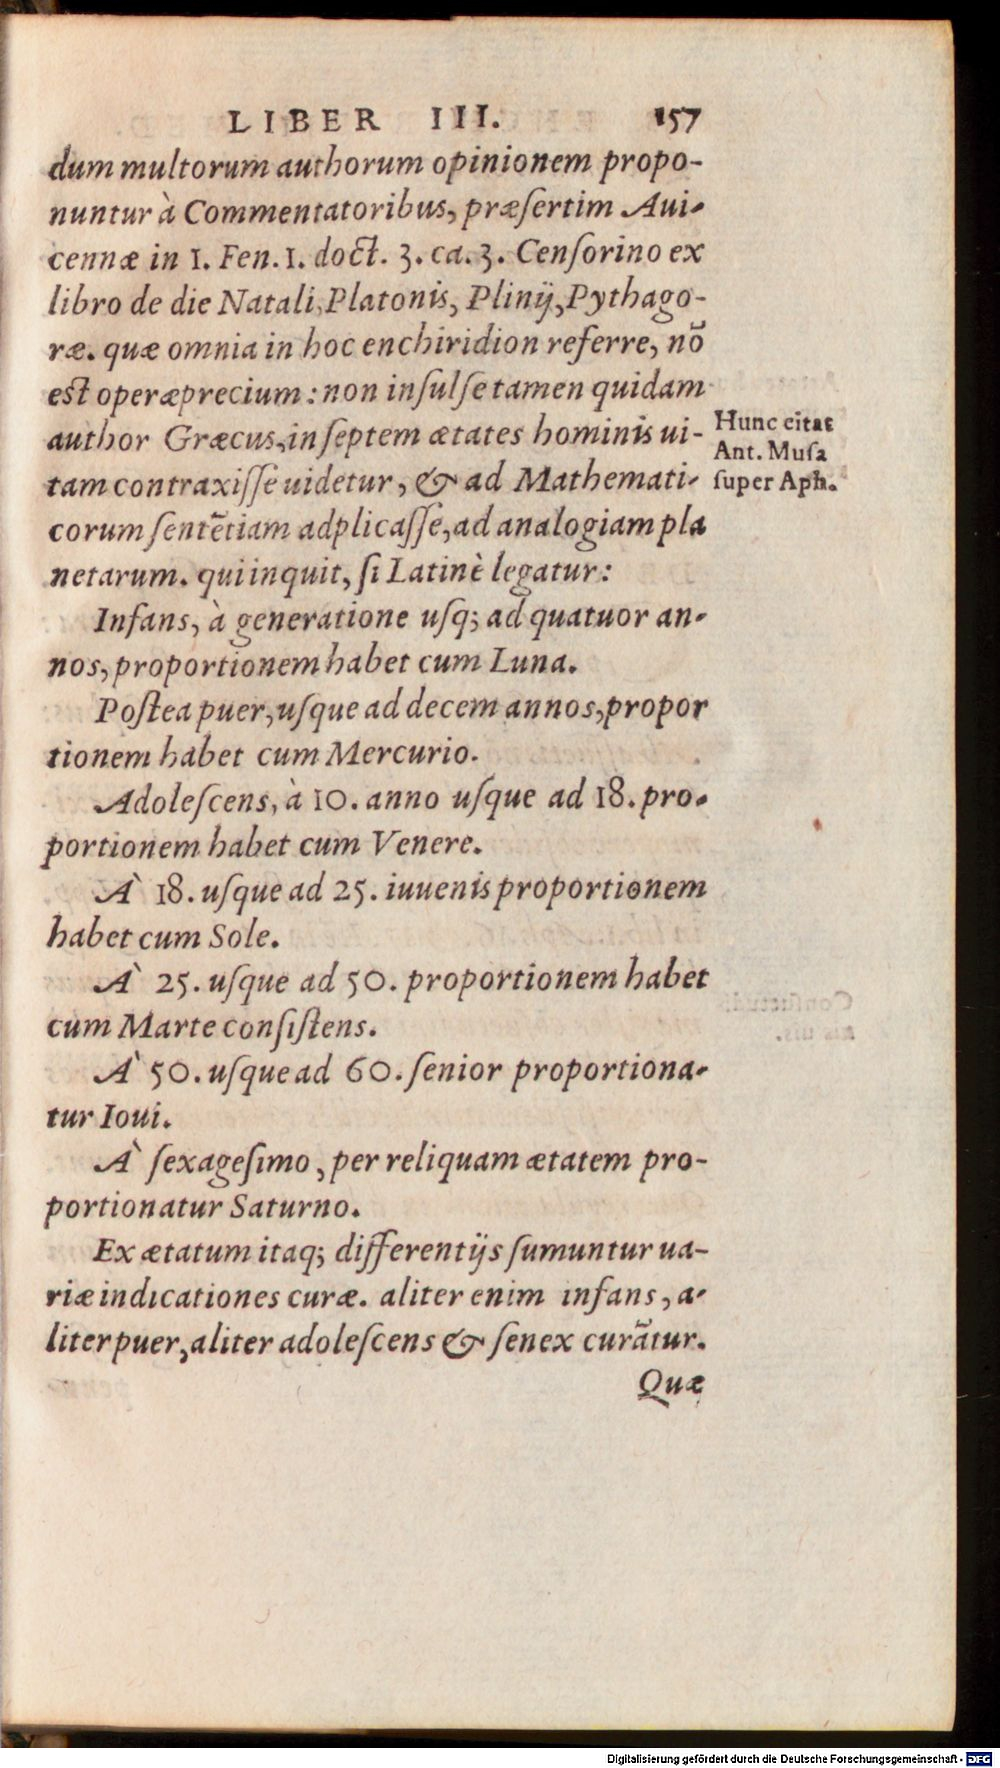 LIBER III. 157
dum multorum authorum opinionem propo-
nuntur à Commentatoribus, præſertim Aui-
cennæ in 1. Fen. 1. doct. 3. ca. 3. Cenſorino ex
libro de die Natali, Platonis, Plinij, Pythago-
ræ. quæ omnia in hoc enchiridion referre, nō
est operæprecium: non inſulſe tamen quidam
author Græcus, in ſeptem ætates hominis ui-
tam contraxiſſe uidetur, & ad Mathemati-
corum ſentētiam adplicaſſe, ad analogiam pla
netarum. qui inquit, ſi Latinè legatur:
Hunc citat
Ant. Muſa
ſuper Aph.
Infans, à generatione uſq; ad quatuor an-
nos, proportionem habet cum Luna.
Poſtea puer, uſque ad decem annos, propor
tionem habet cum Mercurio.
Adoleſcens, à 10. anno uſque ad 18. pro-
portionem habet cum Venere.
À 18. uſque ad 25. iuuenis proportionem
habet cum Sole.
À 25. uſque ad 50. proportionem habet
cum Marte conſiſtens.
À 50. uſque ad 60. ſenior proportiona-
tur Ioui.
À ſexageſimo, per reliquam ætatem pro-
portionatur Saturno.
Ex ætatum itaq; differentijs ſumuntur ua-
riæ indicationes curæ. aliter enim infans, a-
liter puer, aliter adoleſcens & ſenex curātur.
Quæ
Digitalisierung gefördert durch die Deutsche Forschungsgemeinschaft - DFG